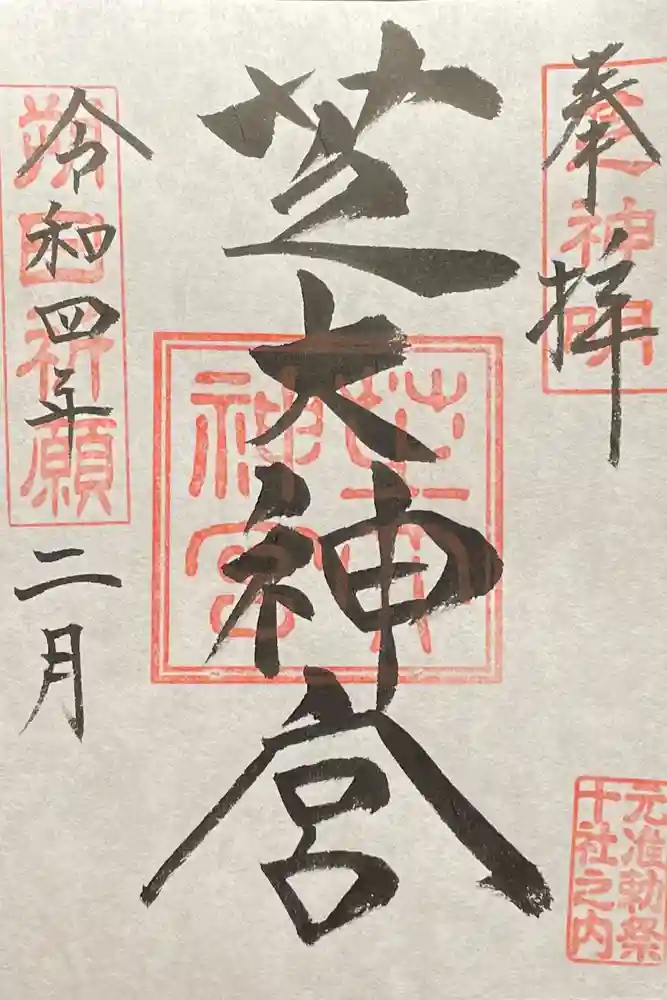 奉拝
芝神明
芝大神宮
芝大
神宮
令和四年二月
朔日祈願
元准勅祭
十社之内